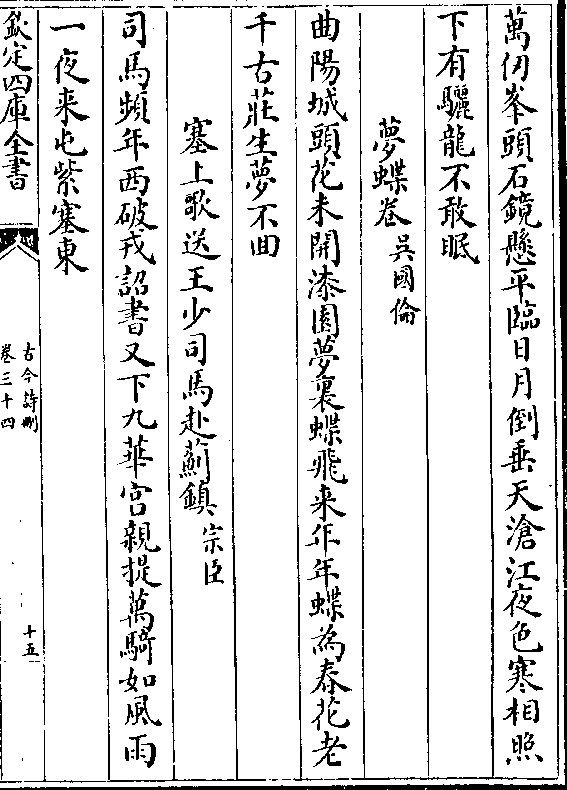 萬仞峯頭石鏡懸平臨日月倒垂天滄江夜色寒相照
下有驪龍不敢眠
夢蝶卷 吳國倫
曲陽城頭花未開漆園夢裏蝶飛来年年蝶為春花老
千古莊生夢不回
塞上歌送王少司馬赴薊鎮 宗臣
司馬頻年西破戎詔書又下九華宫親提萬騎如風雨
一夜来屯紫塞東
欽定四庫全書
古今詩刪
卷三十四
十五